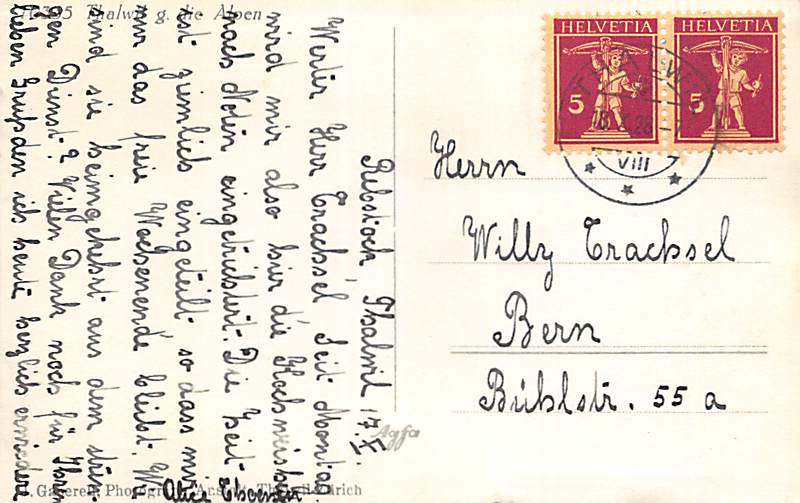 10395 Thalwil g. die Alpen
HELVETIA
HELVETIA
5
5
VIII
Herrn
Willy Trachsel
Bern
Bühlstr. 55 a
Rebstock, Thalwil 17. X.
Werter Herr Trachsel, Seit Montag
wird mir also hier die Kochweisheit
nach Noten eingetrichtert. Die Zeit
ist ziemlich eingeteilt so dass mir
nur das freie Wochenende bleibt. Wie
sind sie heimgekehrt aus dem
den Dienst? Vielen Dank noch für Ihren
lieben Gruss den ich heute herzlich erwidere
Alice
Agfa
Gaberell, Photogr. Anstalt, Thalwil-Zürich